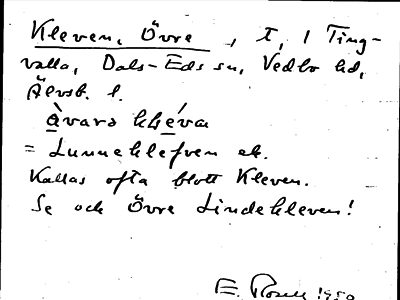 Kleven, Övre, t, 1 Ting-
valla, Dals-Eds sn, Vedbo hd,
Älvsb. l.
= Lunneklefven ek.
Kallas ofta blott Kleven.
Se och Övre Lindekleven!
E. 1950